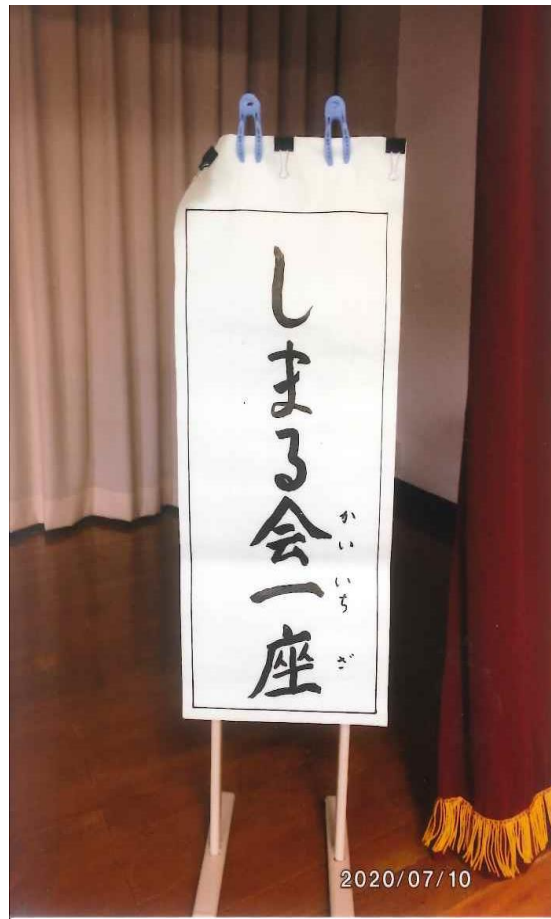 しまる会一座
かい いち ざ
2020/07/10